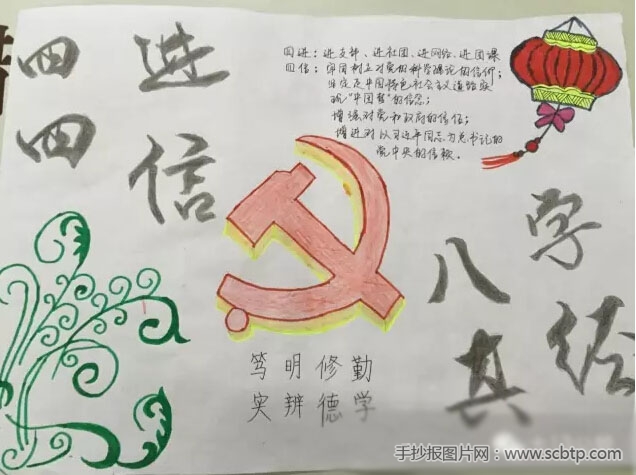 四进
四信
四进：进支部、进社团、进网络、进团课
四信：牢固树立对党的科学理论的信仰；
坚定走中国特色社会主义道路实
现“中国梦”的信念；
增强对党和政府的信任；
增进对以习近平同志为总书记的
党中央的信赖。
八字
真经
笃明修勤
实辨德学
手抄报图片网：www.scbtp.com